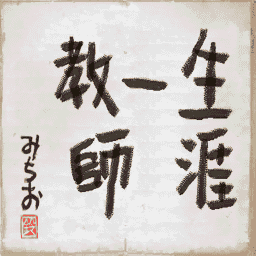 生涯
一
教師
みちお